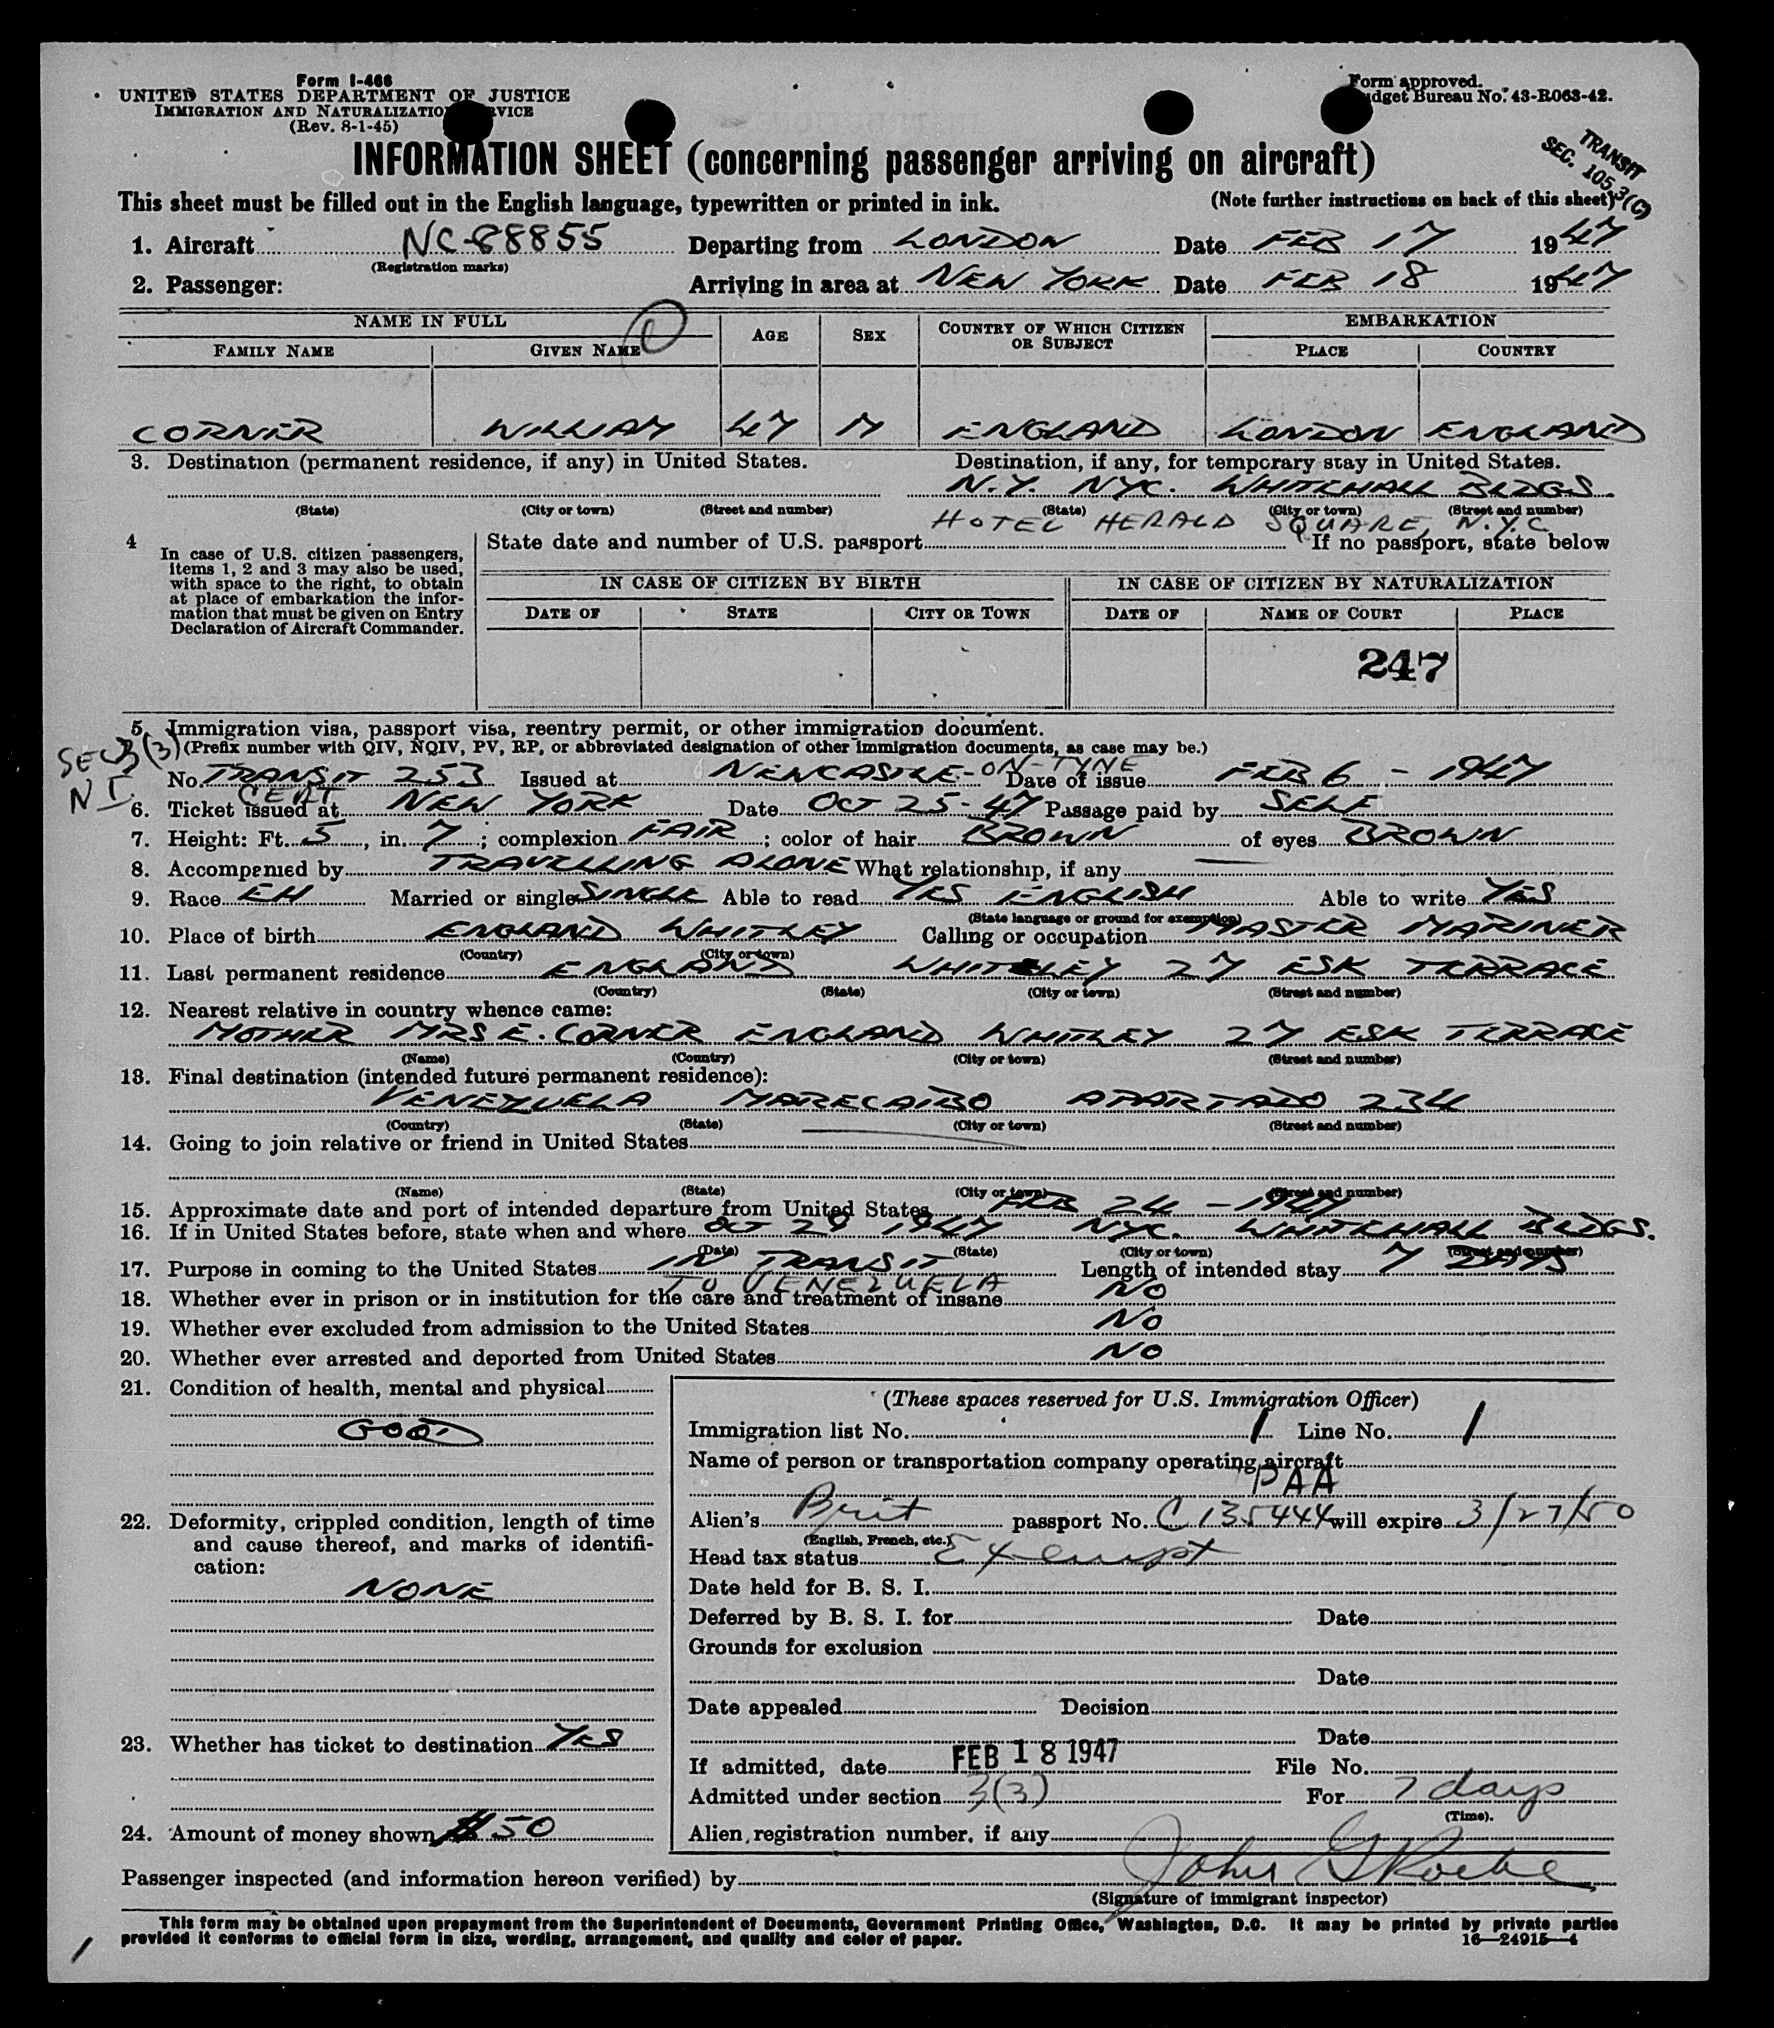 Form I-466
UNITED STATES DEPARTMENT OF JUSTICE
IMMIGRATION AND NATURALIZATION SERVICE
(Rev. 8-1-45)
Form approved.
Budget Bureau No. 43-R063-42.
TRANSIT
SEC. 105.3(C)
INFORMATION SHEET (concerning passenger arriving on aircraft)
This sheet must be filled out in the English language, typewritten or printed in ink. (Note further instructions on back of this sheet)
1. Aircraft NC-88855 Departing from LONDON Date FEB 17 1947
(Registration marks)
2. Passenger: Arriving in area at NEW YORK Date FEB 18 1947
NAME IN FULL AGE SEX COUNTRY OF WHICH CITIZEN OR SUBJECT EMBARKATION
FAMILY NAME GIVEN NAME PLACE COUNTRY
CORNER WILLIAM 47 M ENGLAND LONDON ENGLAND
3. Destination (permanent residence, if any) in United States. Destination, if any, for temporary stay in United States.
N.Y. NYC. WHITEHALL BLDGS.
(State) (City or town) (Street and number) (State) (City or town) (Street and number)
HOTEL HERALD SQUARE, N.Y.C
4 In case of U.S. citizen passengers, items 1, 2 and 3 may also be used, with space to the right, to obtain at place of embarkation the information that must be given on Entry Declaration of Aircraft Commander.
State date and number of U.S. passport If no passport, state below
IN CASE OF CITIZEN BY BIRTH IN CASE OF CITIZEN BY NATURALIZATION
DATE OF STATE CITY OR TOWN DATE OF NAME OF COURT PLACE
247
5. Immigration visa, passport visa, reentry permit, or other immigration document.
SEC 3(3) (Prefix number with QIV, NQIV, PV, RP, or abbreviated designation of other immigration documents, as case may be.)
N I
No. TRANSIT 253 Issued at NEWCASTLE-ON-TYNE Date of issue FEB 6 - 1947
CERT
6. Ticket issued at NEW YORK Date OCT 25-47 Passage paid by SELF
7. Height: Ft. 5, in. 7; complexion FAIR; color of hair BROWN of eyes BROWN
8. Accompanied by TRAVELLING ALONE What relationship, if any
9. Race EH Married or single SINGLE Able to read YES ENGLISH Able to write YES
(State language or ground for exemption)
10. Place of birth ENGLAND WHITLEY Calling or occupation MASTER MARINER
(Country) (City or town)
11. Last permanent residence ENGLAND WHITLEY 27 ESK TERRACE
(Country) (State) (City or town) (Street and number)
12. Nearest relative in country whence came:
MOTHER MRS E. CORNER ENGLAND WHITLEY 27 ESK TERRACE
(Name) (Country) (City or town) (Street and number)
13. Final destination (intended future permanent residence):
VENEZUELA MARECAIBO APARTADO 234
(Country) (State) (City or town) (Street and number)
14. Going to join relative or friend in United States
(Name) (State) (City or town) (Street and number)
15. Approximate date and port of intended departure from United States FEB 24 - 1947
16. If in United States before, state when and where OCT 29 1947 NYC. WHITEHALL BLDGS.
(Date) (State) (City or town) (Street and number)
17. Purpose in coming to the United States IN TRANSIT Length of intended stay 7 DAYS
TO VENEZUELA
18. Whether ever in prison or in institution for the care and treatment of insane NO
19. Whether ever excluded from admission to the United States NO
20. Whether ever arrested and deported from United States NO
21. Condition of health, mental and physical
GOOD
22. Deformity, crippled condition, length of time and cause thereof, and marks of identification:
NONE
23. Whether has ticket to destination YES
24. Amount of money shown $50
(These spaces reserved for U.S. Immigration Officer)
Immigration list No. 1 Line No. 1
Name of person or transportation company operating aircraft
PAA
Alien's Brit passport No. C 135444 will expire 3/27/50
(English, French, etc.)
Head tax status Exempt
Date held for B. S. I.
Deferred by B. S. I. for Date
Grounds for exclusion
Date
Date appealed Decision
Date
If admitted, date FEB 18 1947 File No.
Admitted under section 3(3) For 7 days
(Time).
Alien registration number, if any
Passenger inspected (and information hereon verified) by John G Roche
(Signature of immigrant inspector)
This form may be obtained upon prepayment from the Superintendent of Documents, Government Printing Office, Washington, D.C. It may be printed by private parties
provided it conforms to official form in size, wording, arrangement, and quality and color of paper. 16—24915-4
1